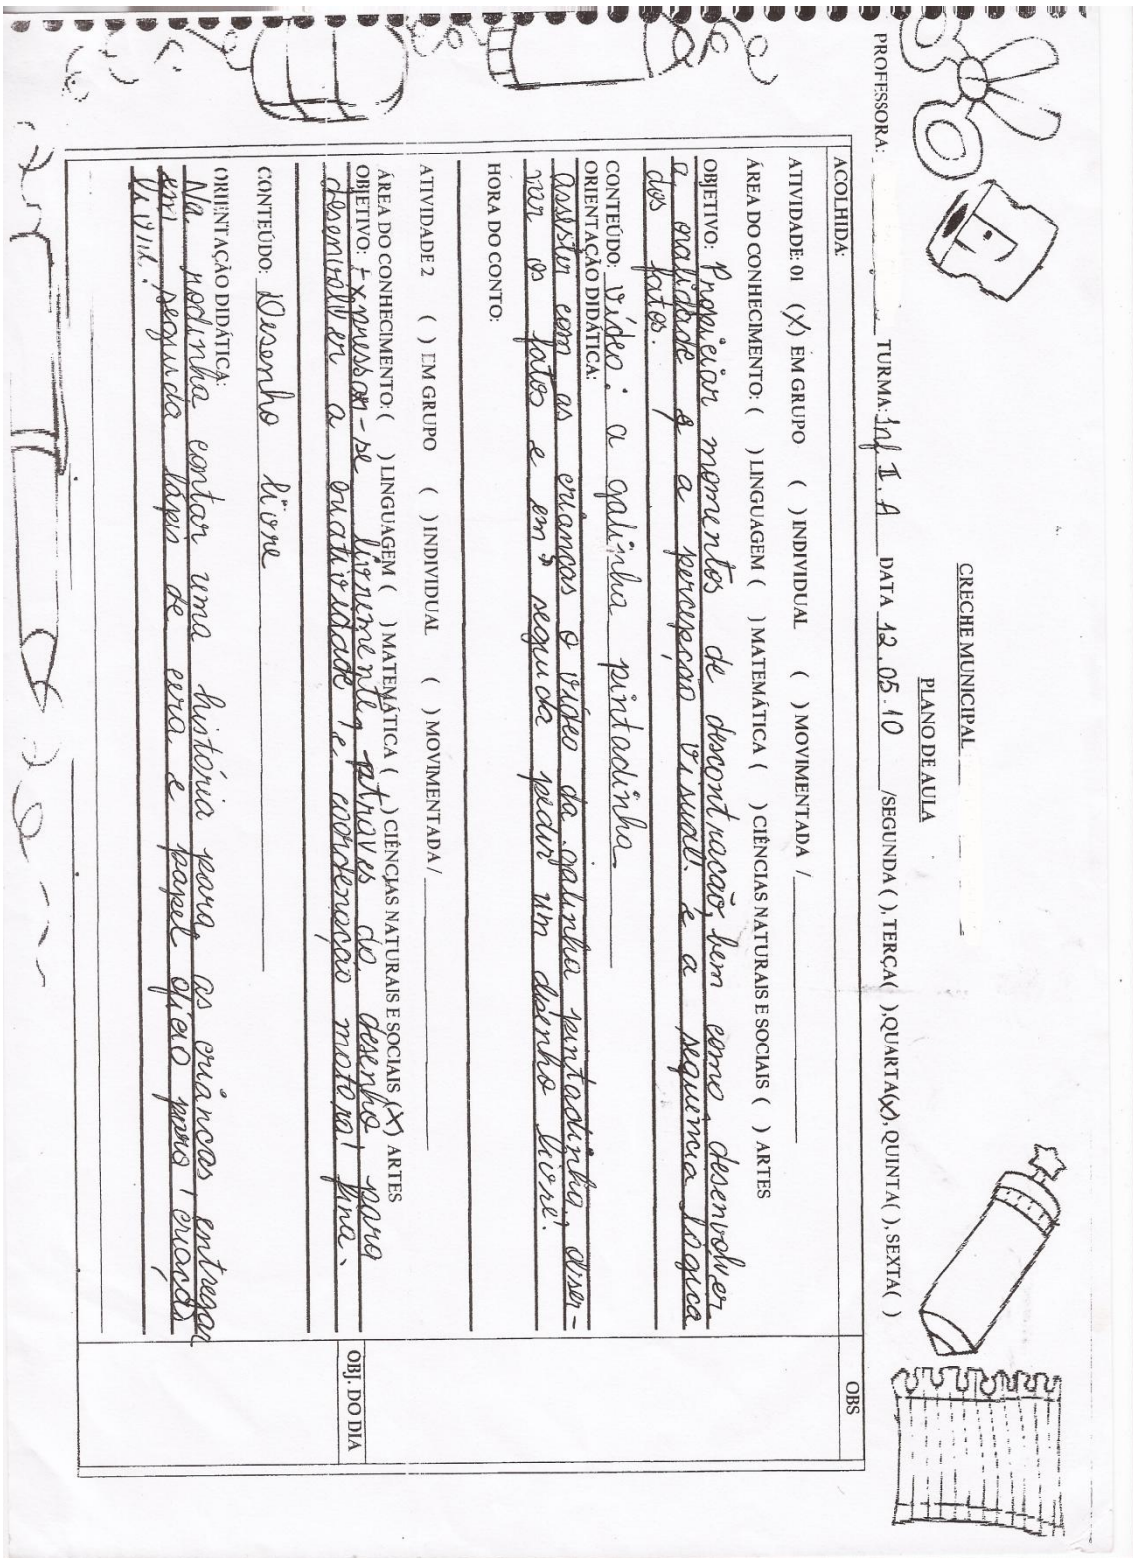 CRECHE MUNICIPAL
PLANO DE AULA
PROFESSORA: TURMA: Inf I. A DATA 12.05.10 /SEGUNDA ( ), TERÇA( ),QUARTA(X), QUINTA( ), SEXTA( )
ACOLHIDA: OBS
ATIVIDADE: 01 (X) EM GRUPO ( ) INDIVIDUAL ( ) MOVIMENTADA /
ÁREA DO CONHECIMENTO: ( ) LINGUAGEM ( ) MATEMÁTICA ( ) CIÊNCIAS NATURAIS E SOCIAIS ( ) ARTES
OBJETIVO: Propiciar momentos de descontração, bem como desenvolver
a oralidade a percepção visual. e a sequência lógica
dos fatos.
CONTEÚDO: Vídeo: a galinha pintadinha
ORIENTAÇÃO DIDÁTICA:
assistir com as crianças o vídeo da galinha pintadinha,
var os fatos e em seguida pedir um desenho livre!
HORA DO CONTO:
ATIVIDADE 2 ( ) EM GRUPO ( ) INDIVIDUAL ( ) MOVIMENTADA /
ÁREA DO CONHECIMENTO: ( ) LINGUAGEM ( ) MATEMÁTICA ( ) CIÊNCIAS NATURAIS E SOCIAIS (X) ARTES
OBJETIVO: Expressar-se livremente, atraves do desenho para OBJ. DO DIA
desenvolver a criatividade e coordenação motora fina.
CONTEÚDO: Desenho livre
ORIENTAÇÃO DIDÁTICA:
Na rodinha contar uma história para as crianças, entregar
em seguida lápis de cera e papel ofício para criação
livre!